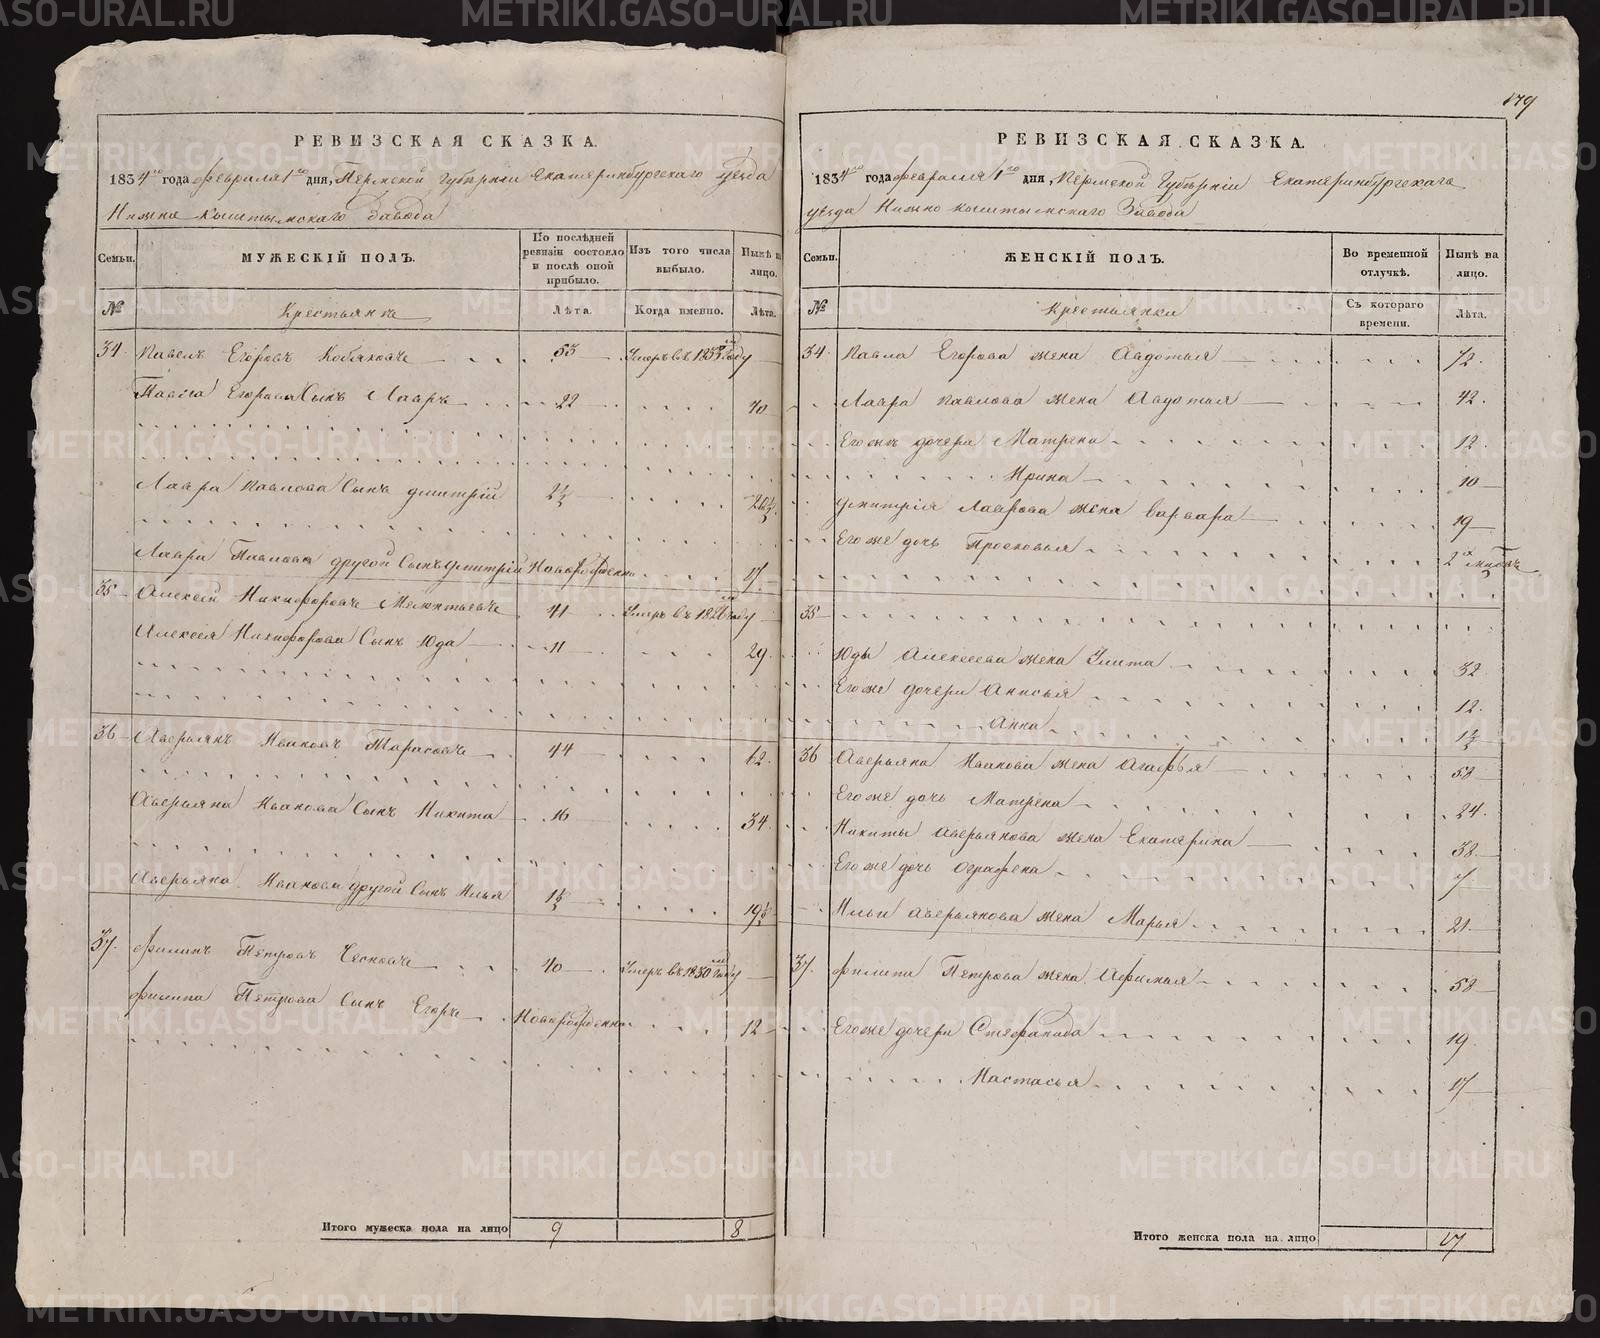 179
РЕВИЗСКАЯ СКАЗКА.
1834го года февраля 1го дня, Пермской Губерніи Екатеринбургскаго уезда
Нижне Кыштымскаго Завода
Семьи. МУЖЕСКІЙ ПОЛЪ. По послѣдней ревизіи состояло и послѣ оной прибыло. Изъ того числа выбыло. Нынѣ на лицо.
№ Крестьянъ Лѣта. Когда именно. Лѣта.
34 Павелъ Егоровъ 53 Умеръ въ 1833м году
Павла Егорова Сынъ Лавръ 22 40
Лавра Павлова Сынъ Дмитрій 2½ 20½
Лавра Павлова другой Сынъ Дмитрій Новорожденно 17
35 Алексей Никифоровъ 41 Умеръ въ 1826м году
Алексея Никифорова Сынъ Юда 11 29
36 Аверьянъ Ивановъ Тарасовъ 44 62
Аверьяна Иванова Сынъ Никита 16 34
Аверьяна Иванова другой Сынъ Илья 1½ 19½
37 Филипъ Петровъ 40 Умеръ въ 1830м году
Филипа Петрова Сынъ Егоръ Новорожденно 12
Итого мужеска пола на лицо 9 8
РЕВИЗСКАЯ СКАЗКА.
1834го года февраля 1го дня, Пермской Губерніи Екатеринбургскаго
уезда Нижне Кыштымскаго Завода
Семьи. ЖЕНСКІЙ ПОЛЪ. Во временной отлучкѣ. Нынѣ на лицо.
№ Крестьянки Съ котораго времени. Лѣта.
34 Павла Егорова жена Авдотья 72
Лавра Павлова жена Авдотья 42
Его жъ дочери Матрена 12
Ирина 10
Дмитрія Лаврова жена Варвара 19
Его же дочь Просковья 2х
35
Юды Алексеева жена Улита 32
Его же дочери Анисья 12
Анна 1½
36 Аверьяна Иванова жена Агафья 58
Его же дочь Матрена 24
Никиты Аверьянова жена Екатерина 38
Его же дочь Ографена 7
Ильи Аверьянова жена Марья 21
37 Филипа Петрова жена Афимья 58
Его же дочери Стефанида 19
Настасья 17
Итого женска пола на лицо 17
METRIKI.GASO-URAL.RU